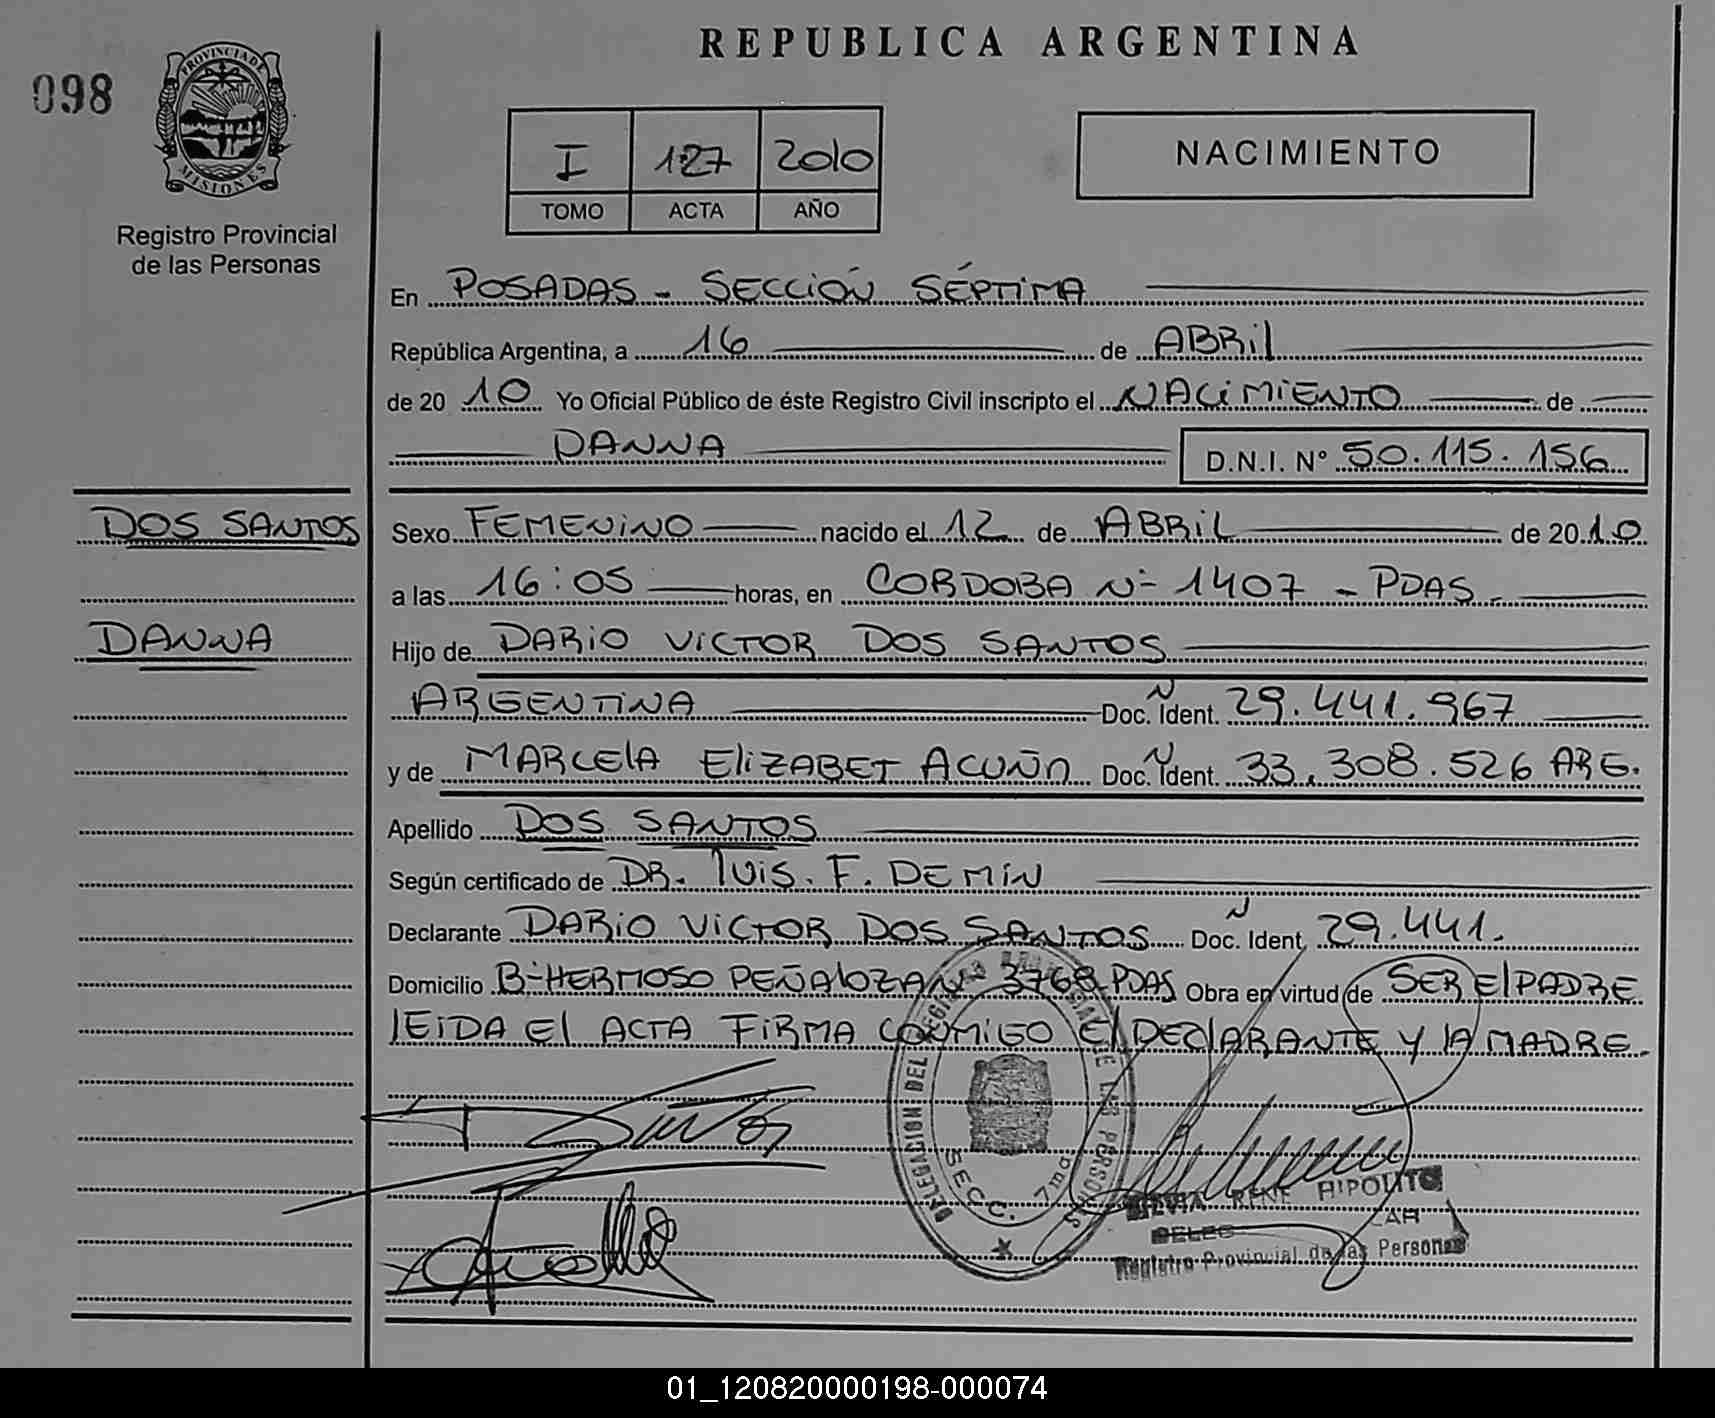 REPUBLICA ARGENTINA
098
PROVINCIA DE
MISIONES
Registro Provincial
de las Personas
I 127 2010
TOMO ACTA AÑO
NACIMIENTO
En POSADAS - SECCIÓN SÉPTIMA
República Argentina, a 16 de ABRIL
de 20 10 Yo Oficial Público de éste Registro Civil inscripto el NACIMIENTO de
DANNA D.N.I. N° 50.115.156
DOS SANTOS
DANNA
Sexo FEMENINO nacido el 12 de ABRIL de 20 10
a las 16:05 horas, en CORDOBA N° 1407 - PDAS.
Hijo de DARIO VICTOR DOS SANTOS
ARGENTINA Doc. Ident. N 29.441.967
y de MARCELA ELIZABET ACUÑA Doc. Ident. N 33.308.526 ARG.
Apellido DOS SANTOS
Según certificado de DR. LUIS. F. DEMIN
Declarante DARIO VICTOR DOS SANTOS Doc. Ident. N 29.441.
Domicilio B° HERMOSO PEÑALOZA N° 3768 PDAS Obra en virtud de SER EL PADRE
LEIDA EL ACTA FIRMA CONMIGO EL DECLARANTE Y LA MADRE.
DELEGACION DEL REGISTRO PROVINCIAL DE LAS PERSONAS
SECC. 7ma
RENE HIPOLITO
Registro Provincial de las Personas
01_120820000198-000074